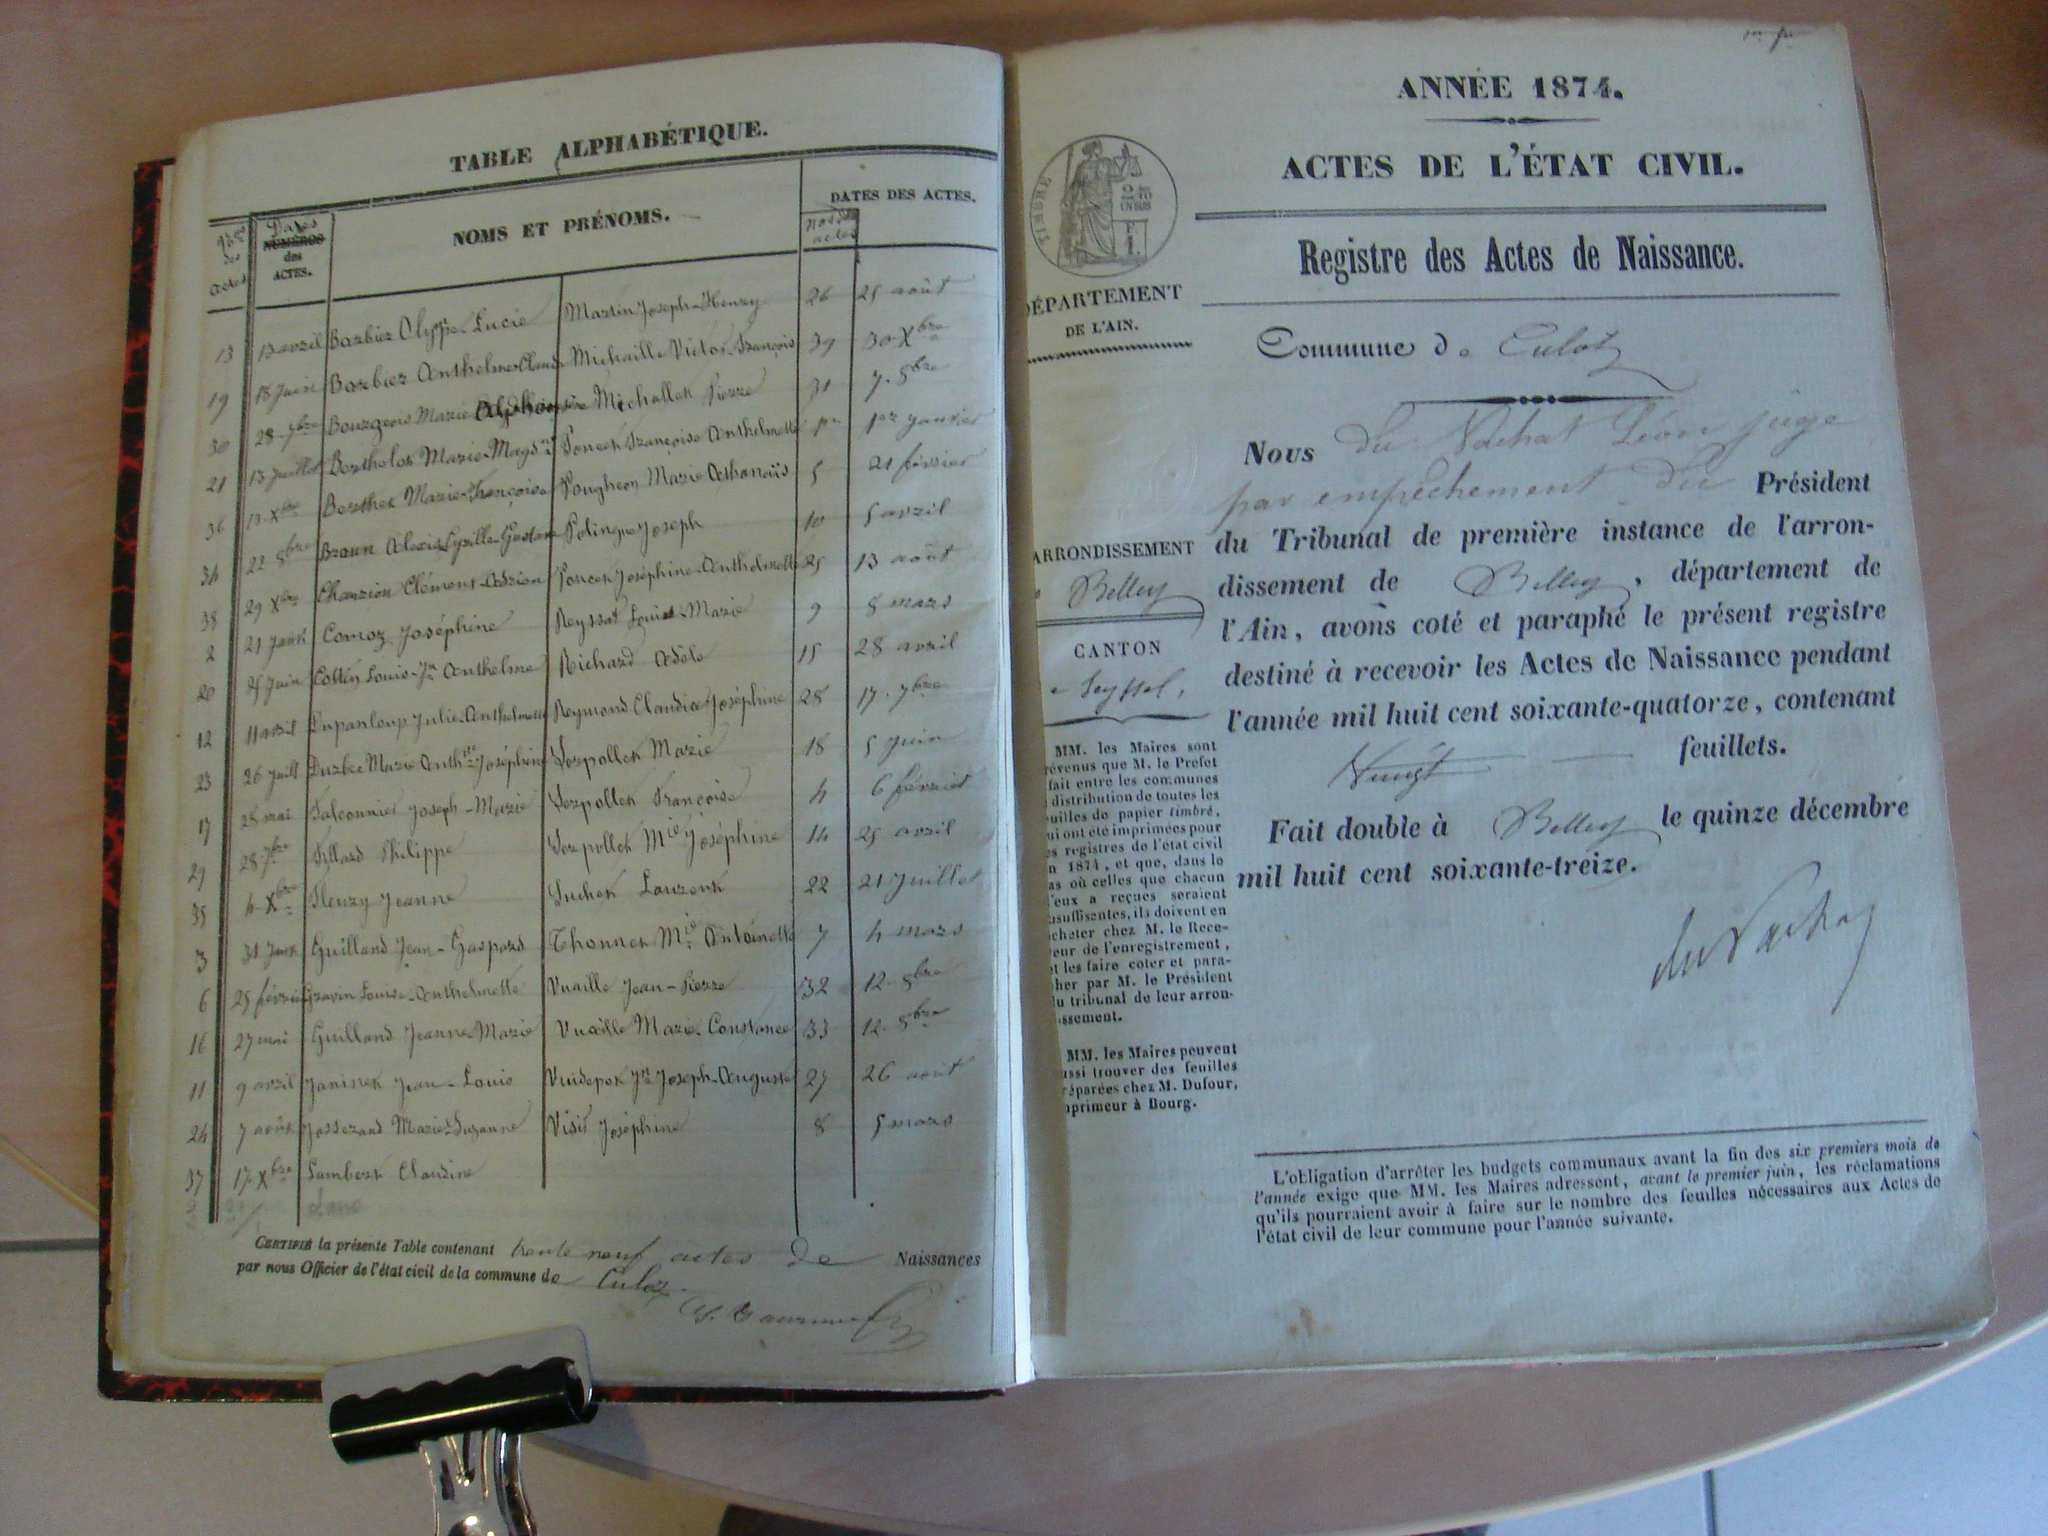 TABLE ALPHABÉTIQUE.
Nos des actes
Dates
NUMÉROS
des
ACTES.
NOMS ET PRÉNOMS.
Nos des actes
DATES DES ACTES.
13 13 avril Barbier Lucie Martin Joseph-Henry 26 25 août
19 18 Juin Barbier Anthelme Claude Michaille Victor-François 39 30 Xbre
30 28 7bre Bourgeois Marie Michallet Pierre 31 7 8bre
21 13 Juillet Berthelot Marie-Magdne Poncet Françoise Anthelmette 1er 1er janvier
36 13 Xbre Berthet Marie-Françoise Pougheon Marie Athanaïs 5 21 février
34 22 8bre Braun Alexis-Cyrille-Gustave Potingue Joseph 10 5 avril
38 29 Xbre Chanzion Clément-Adrien Poncet Joséphine-Anthelmette 25 13 août
2 21 Janv Comoz Joséphine Reyssat Louis-Marie 9 8 mars
20 25 Juin Cottin Louis-Jn Anthelme Richard Adèle 15 28 avril
12 11 avril Dupanloup Julie-Anthelmette Reymond Claudia Joséphine 28 17 7bre
23 26 Juill Durbec Marie Anthtte Joséphine Serpollet Marie 18 5 Juin
17 28 mai Falconnier Joseph-Marie Serpollet Françoise 4 6 février
29 28 7bre Fillard Philippe Serpollet Mie Joséphine 14 25 avril
35 4 Xbre Fleury Jeanne Suchet Laurent 22 21 Juillet
3 31 Janv Guilland Jean-Gaspard Thonnet Mie Antoinette 7 4 mars
6 25 février Gravin Louise-Anthelmette Vuaille Jean-Pierre 32 12 8bre
16 27 mai Guilland Jeanne-Marie Vuaille Marie-Constance 33 12 8bre
11 9 avril Janinet Jean-Louis Vuidepot Jn Joseph-Auguste 27 26 août
24 7 août Josserand Marie-Suzanne Visit Joséphine 8 5 mars
37 17 Xbre Lambert Claudine
CERTIFIÉ la présente Table contenant trente neuf actes de Naissances
par nous Officier de l'état civil de la commune de Culoz
ANNÉE 1874.
ACTES DE L'ÉTAT CIVIL.
TIMBRE
2 10
EN SUS
F.
1.
Registre des Actes de Naissance.
DÉPARTEMENT
DE L'AIN.
Commune de Culoz
Nous du Vachat Léon juge
par empêchement du Président
du Tribunal de première instance de l'arron-
dissement de Belley, département de
l'Ain, avons coté et paraphé le présent registre
destiné à recevoir les Actes de Naissance pendant
l'année mil huit cent soixante-quatorze, contenant
Vingt feuillets.
Fait double à Belley le quinze décembre
mil huit cent soixante-treize.
du Vachat
ARRONDISSEMENT
Belley
CANTON
Seyssel,
MM. les Maires sont
révenus que M. le Préfet
fait entre les communes
distribution de toutes les
uilles de papier timbré,
ui ont été imprimées pour
es registres de l'état civil
n 1874, et que, dans le
as où celles que chacun
'eux a reçues seraient
nsuffisantes, ils doivent en
cheter chez M. le Rece-
eur de l'enregistrement,
t les faire coter et para-
her par M. le Président
u tribunal de leur arron-
ssement.
MM. les Maires peuvent
ussi trouver des feuilles
réparées chez M. Dufour,
mprimeur à Bourg.
L'obligation d'arrêter les budgets communaux avant la fin des six premiers mois de
l'année exige que MM. les Maires adressent, avant le premier juin, les réclamations
qu'ils pourraient avoir à faire sur le nombre des feuilles nécessaires aux Actes de
l'état civil de leur commune pour l'année suivante.